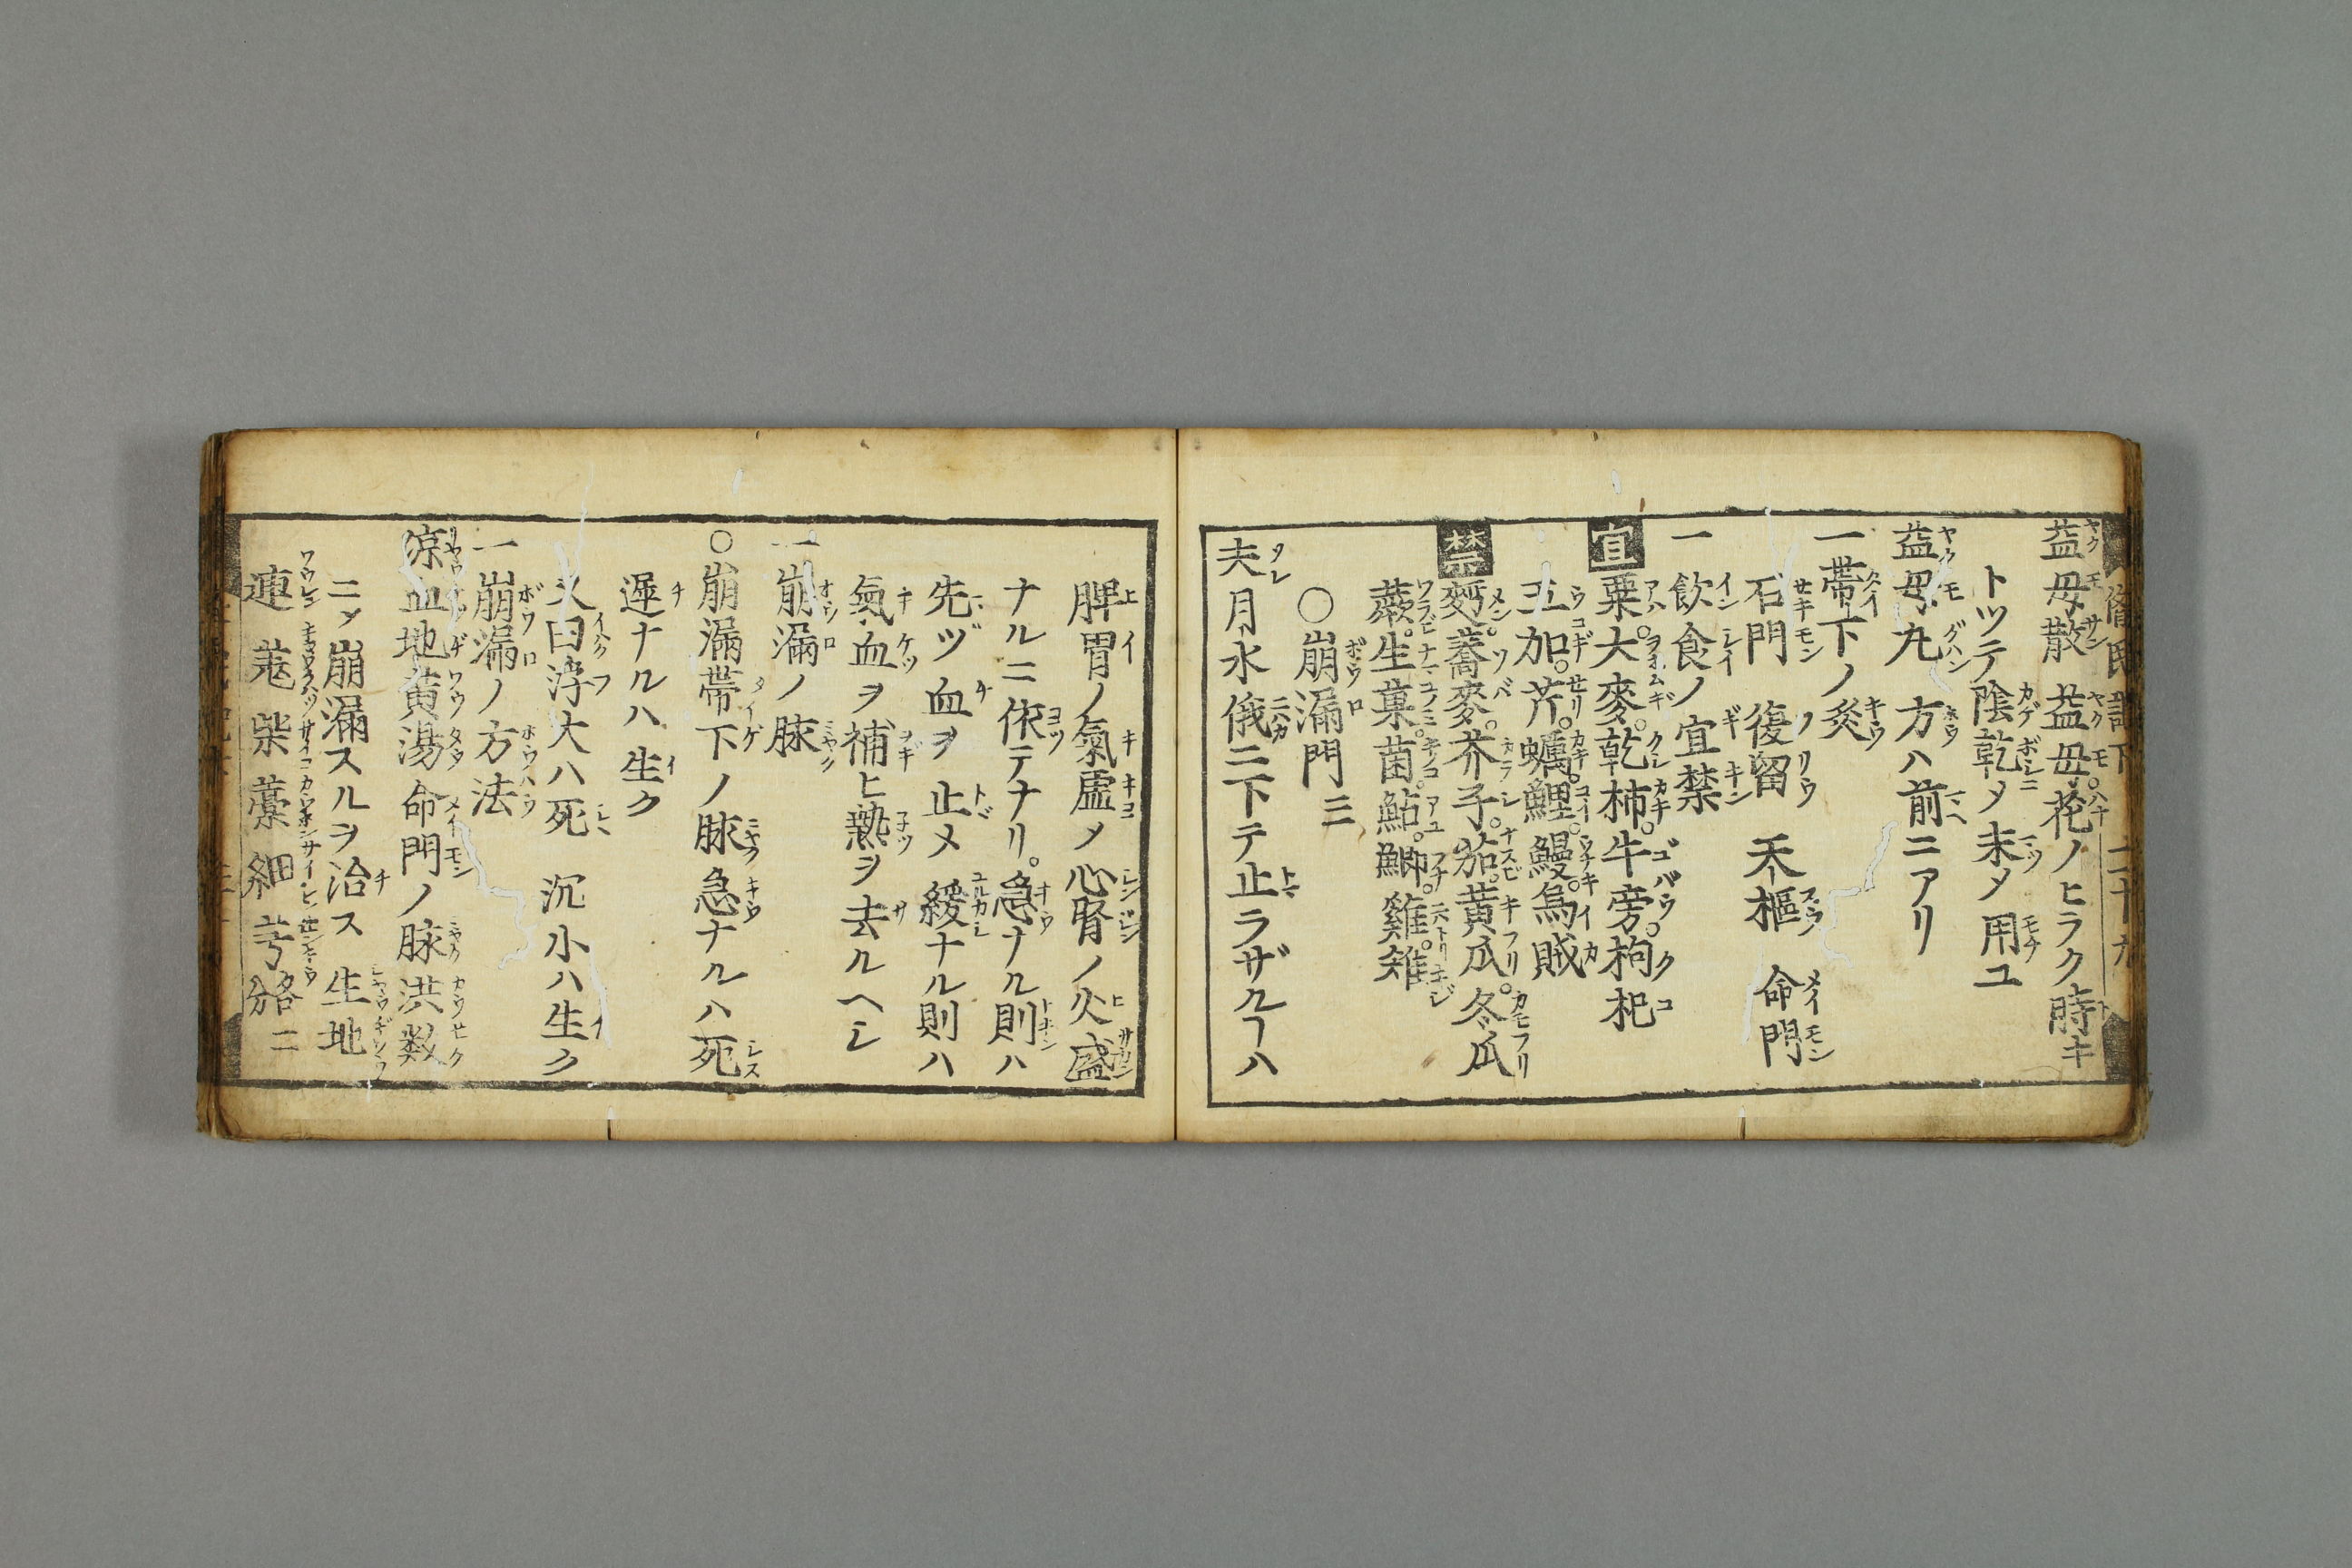 益母散 益母花ノヒラク時キ
トツテ陰乾メ末メ用ユ
益母丸 方ハ前ニアリ
一帯下ノ灸
石門 復留 天樞 命門
一飲食ノ宜禁
宜 粟。大麥。乾柿。牛旁。枸杞
五加。芹。蠣。鯉。鰻。烏賊
禁 麪。蕎麥。芥子。茄。黄瓜。冬瓜
蕨。生菓。菌。鮎。鯽。雞。雉
〇崩漏門 三
夫月水俄ニ下テ止ラザルヿハ
脾胃ノ氣虚メ心腎ノ火盛
ナルニ依テナリ。急ナル則ハ
先ヅ血ヲ止メ緩ナル則ハ
氣血ヲ補ヒ熱ヲ去ルヘシ
一崩漏ノ脉
〇崩漏帯下ノ脉急ナルハ死
遲ナルハ生ク
又曰浮大ハ死 沉小ハ生ク
一崩漏ノ方法
凉血地黄湯 命門ノ脉洪数
ニメ崩漏スルヲ治ス 生地
連 羗 柴 藁 細 芎 各二分